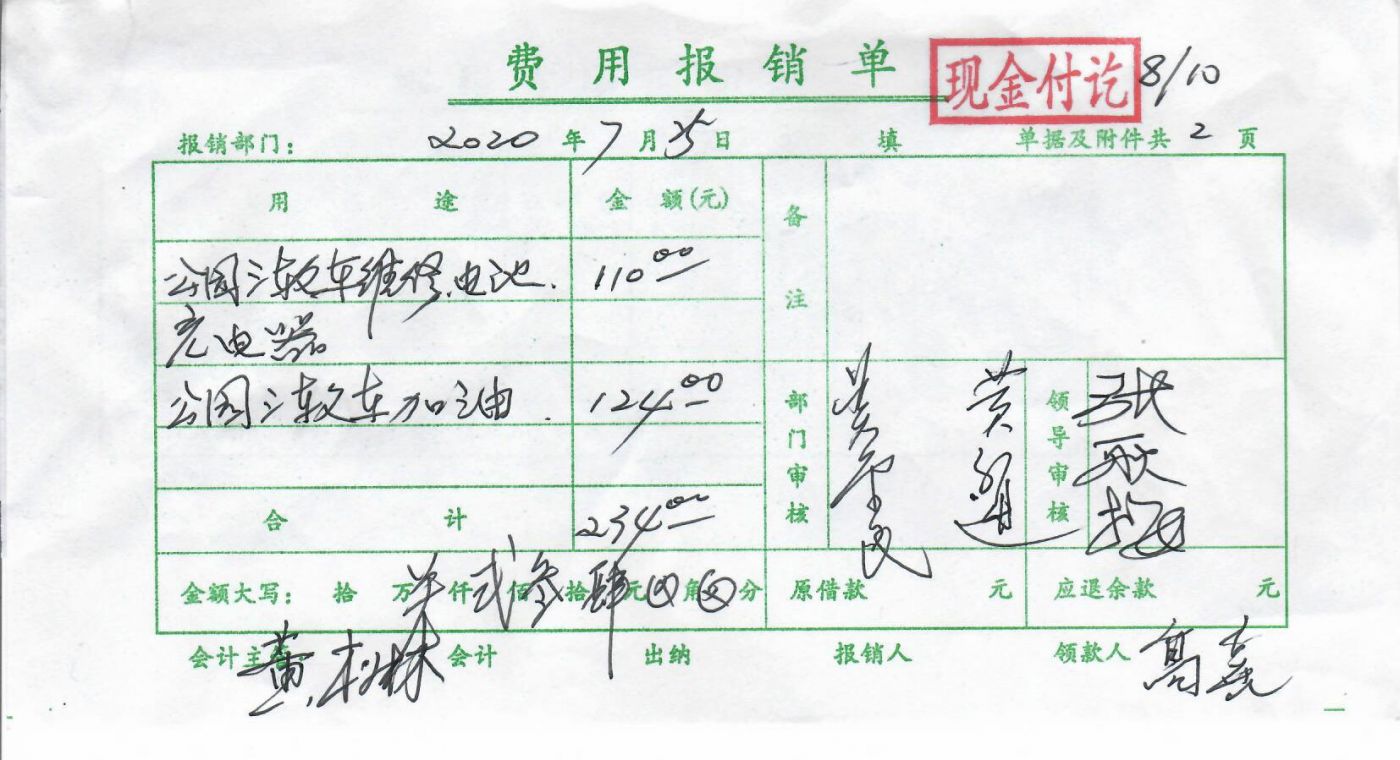 费用报销单
现金付讫 8/10
报销部门： 2020年7月25日 填 单据及附件共 2 页
用途 金额(元) 备注
公园三轮车维修、电池、 110.00
充电器
公园三轮车加油 124.00
部门审核 黄 领导审核 张
合计 234.00
金额大写： 拾 万 仟 贰佰 叁拾 肆元 角 分 原借款 元 应退余款 元
会计主管 黄 林 会计 出纳 报销人 领款人 高